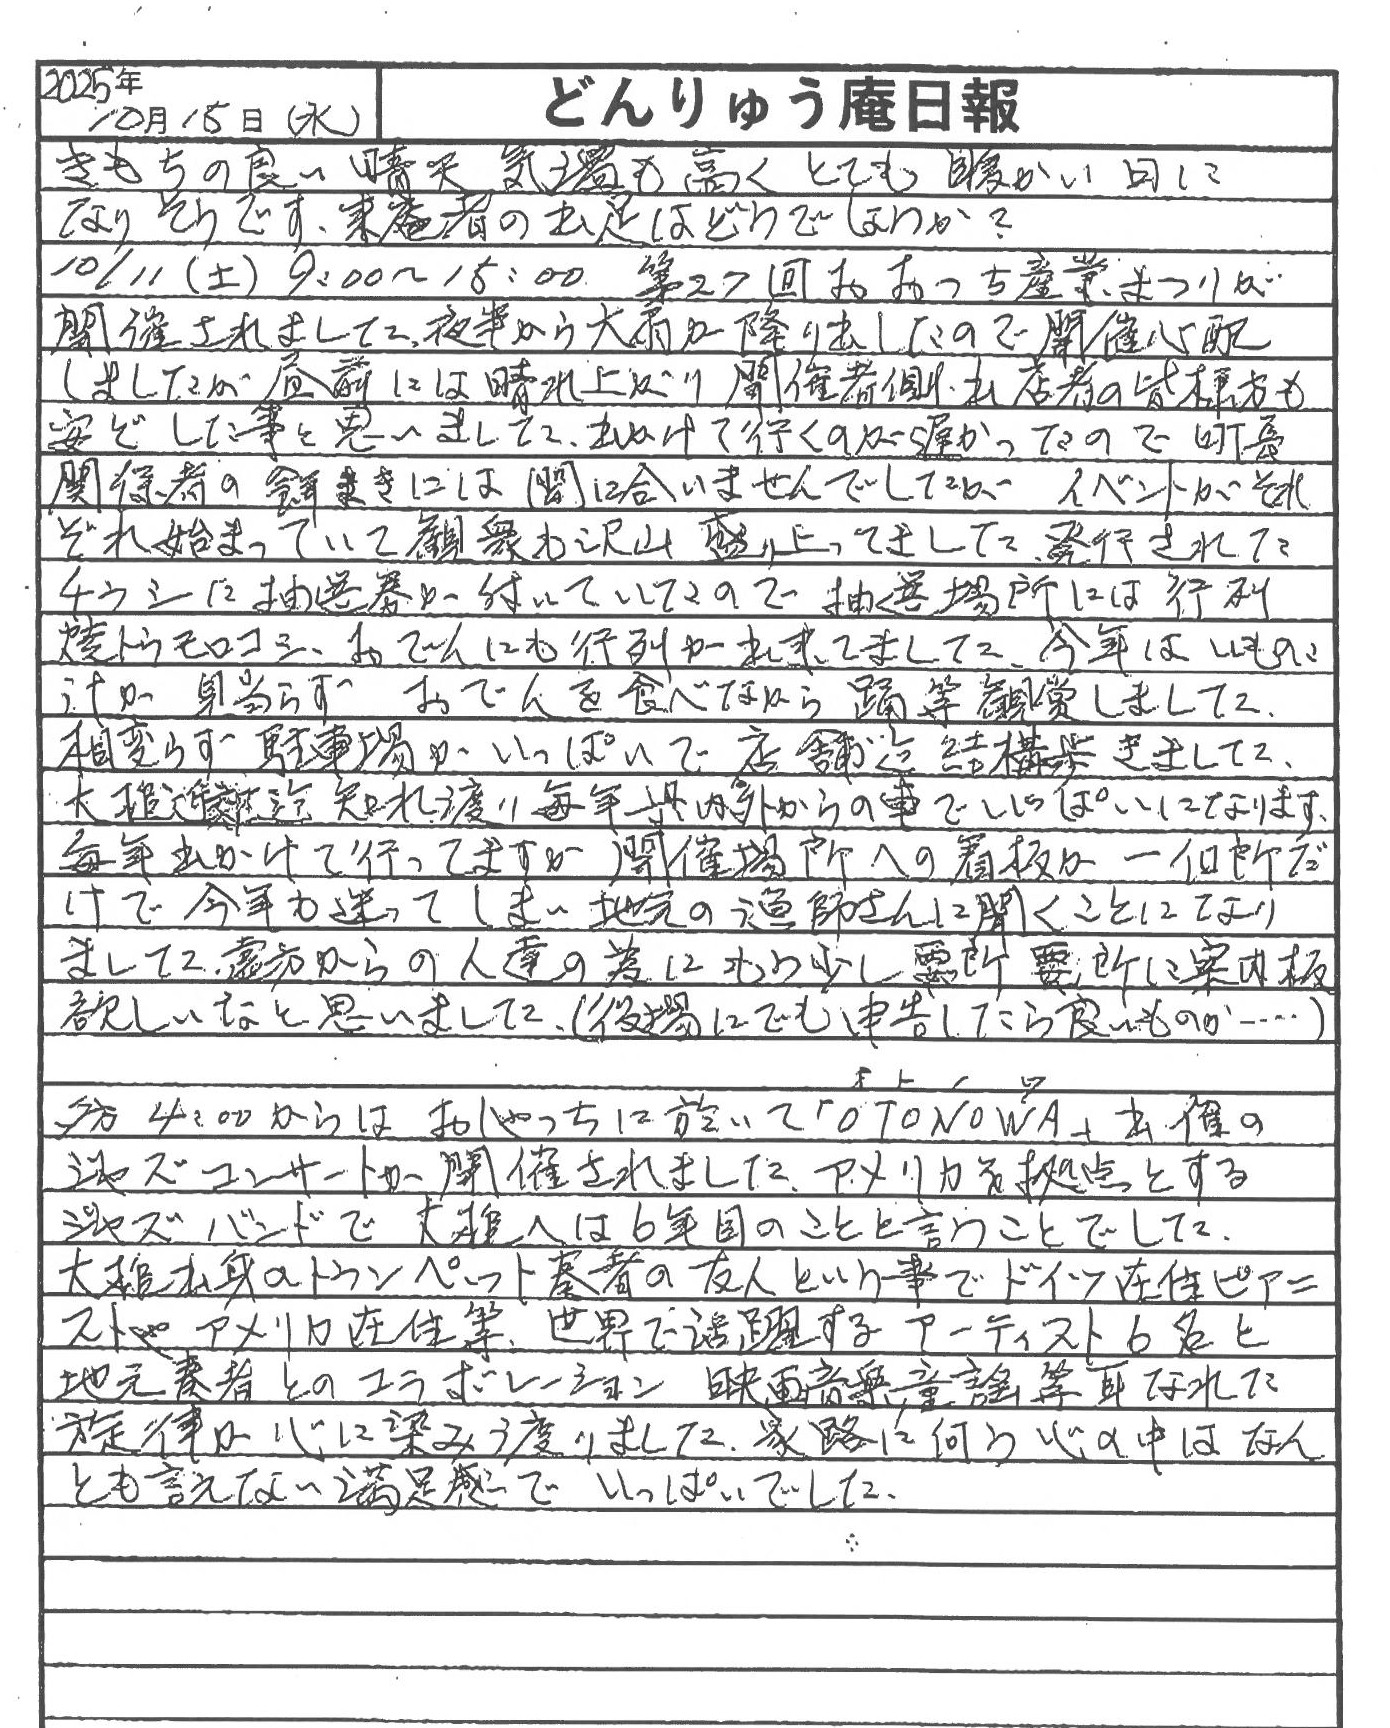 2025年
10月15日(水)
どんりゅう庵日報
きもちの良い晴天 気温も高くとても暖かい日に
なりそうです、来庵者の出足はどうでしょうか?
10/11(土) 9:00~15:00 第27回おおつち産業まつりが
開催されました、夜半から大雨が降り出したので開催心配
しましたが昼前には晴れ上がり開催者側、出店者の皆様方も
安どした事と思いました、出かけて行くのが遅かったので町長
関係者の餅まきには間に合いませんでしたが イベントがそれ
ぞれ始まっていて観衆も沢山盛り上ってました、発行された
チラシに抽選券が付いていたので抽選場所には行列
焼トウモロコシ、おでんにも行列が出来てました、今年はいものこ
汁が見当らず おでんを食べながら踊等観賞しました、
相変らず駐車場がいっぱいで店舗迄結構歩きました、
大槌近郊迄知れ渡り毎年県内外からの車でいっぱいになります、
毎年出かけて行ってますが開催場所への看板が一個所だ
けで今年も迷ってしまい地元の漁師さんに聞くことになり
ました、遠方からの人達の為にもう少し要所要所に案内板
欲しいなと思いました、(役場にでも申告したら良いものか……)
オトノワ
夕方4:00からはおしゃっちに於いて「OTONOWA」主催の
ジャズコンサートが開催されました、アメリカを拠点とする
ジャズバンドで大槌へは6年目のことと言うことでした、
大槌出身のトランペット奏者の友人という事でドイツ在住ピアニ
ストやアメリカ在住等、世界で活躍するアーティスト6名と
地元奏者とのコラボレーション 映画音楽童謡等耳なれた
旋律が心に染みう渡りました、家路に向う心の中はなん
とも言えない満足感でいっぱいでした、